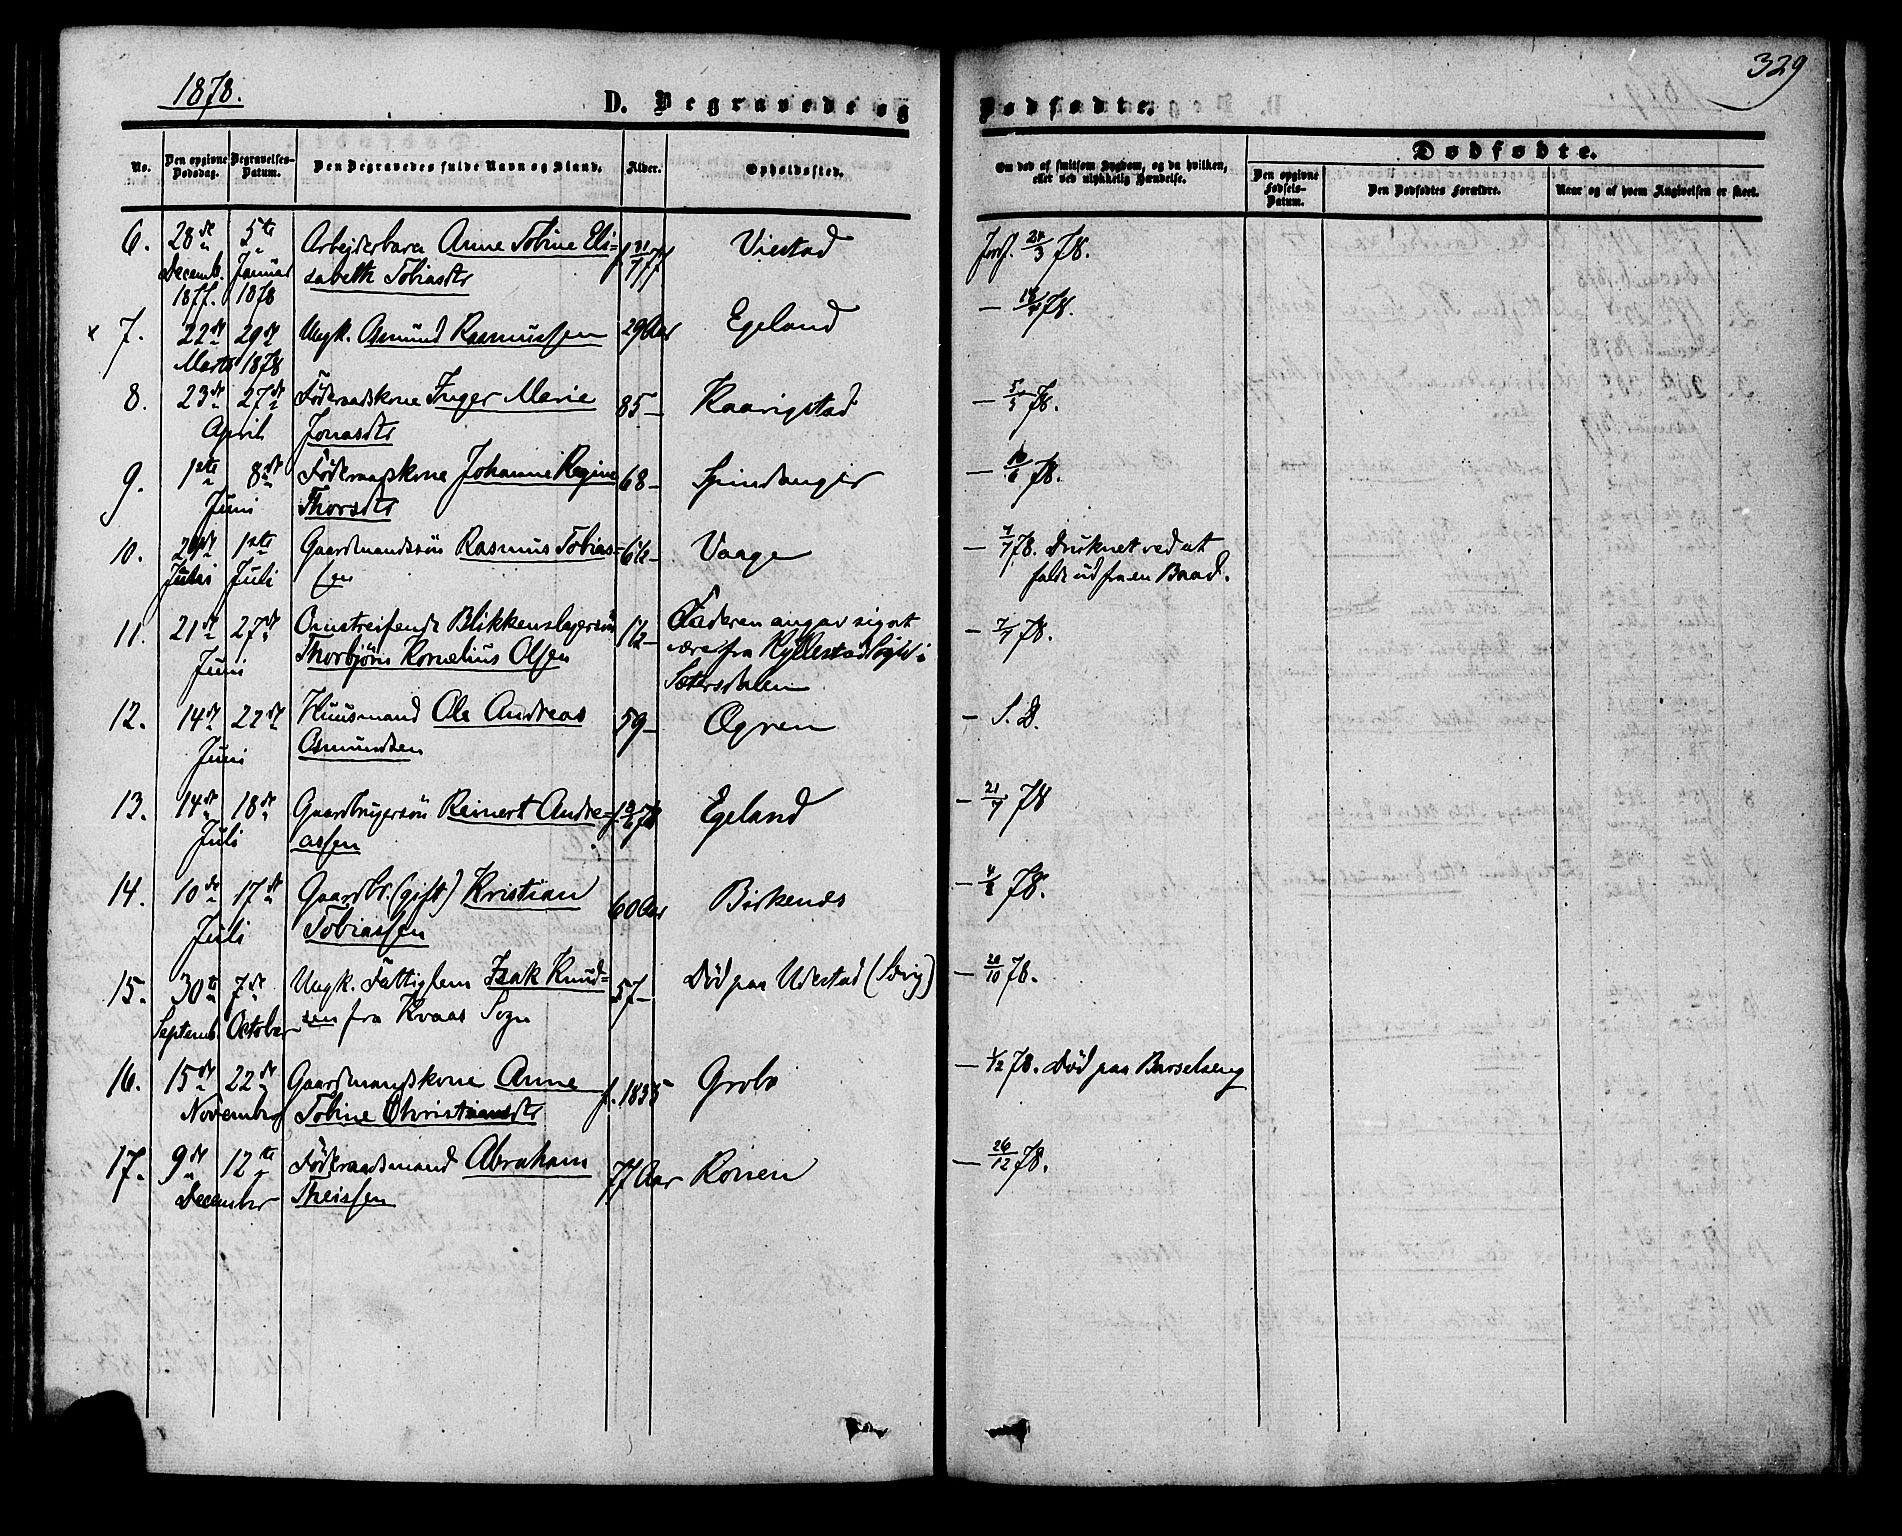 1878.
329
D. Begravede og
Dødfødte.
No.
Den opgivne Dødsdag.
Begravelses-Datum.
Den Begravedes fulde Navn og Stand.
Alder.
Opholdssted.
Om død af smitsom Sygdom, og da hvilken, eller ved ulykkelig Hændelse.
Dødfødte.
Den opgivne Fødsels-Datum.
Den Dødfødtes Forældre.
Naar og af hvem Angivelsen er skeet.
6. 28de 5te Arbejderbarn Anne Tobine Eli- Viestad
Decemb. Januar sabeth Tobiasdtr
1877. 1878
× 7. 22de 29de Ungk. Asmund Rasmussen 29 Aar Egeland
Marts 1878
8. 23de 27de Föderaadskone Inger Marie 85 – Kaarigstad – 5/5 78.
April Jonasdtr
9. 1ste 8de Föderaadskone Johanne Regine 68 – Spindanger – 16/6 78.
Juni Thorsdtr
10. 1ste Gaardmandssön Rasmus Tobias- Vaage – 7/7 78. Druknet ved at
Juli sen falde ud fra en Baad.
11. 21de 27de Omstreifende Blikkenslagersön Faderen angav sig at – 7/7 78.
Juni Thorbjörn Kornelius Olsen være fra Hyllestad Sogn i
Sætersdalen
12. 14de 22de Huusmand Ole Andreas 59 – Ogren – S. D.
Juni Osmundsen
13. 14de 18de Gaardbrugersön Reinert Andre- Egeland – 21/7 78
Juli assen
14. 10de 17de Gaardbr. (gift) Kristian 60 Aar Birkenes – 4/8 78.
Juli Tobiassen
15. 30te 7de Ungk. Fattiglem Isak Knud- 57 – Död paa Udestad – 20/10 78.
Septemb. October sen fra Kvaas Sogn
16. 15de 22de Gaardmandskone Anne f. 1835 Grobø – 1/12 78. Död paa Barselseng
November Tobine Christiansdtr
17. 9de 12te Föderaadsmand Abraham 77 Aar Rönen – 26/12 78.
December Theissen